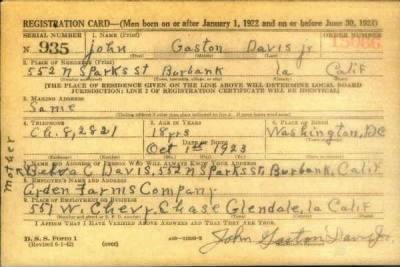 REGISTRATION CARD—(Men born on or after January 1, 1922 and on or before June 30, 1924)
SERIAL NUMBER 1. NAME (Print) ORDER NUMBER
N 935 John Gaston Davis Jr
(First) (Middle) (Last)
2. PLACE OF RESIDENCE (Print)
552 N Sparks St Burbank la Calif
[THE PLACE OF RESIDENCE GIVEN ON THE LINE ABOVE WILL DETERMINE LOCAL BOARD
JURISDICTION; LINE 2 OF REGISTRATION CERTIFICATE WILL BE IDENTICAL]
3. MAILING ADDRESS
Same
4. TELEPHONE 5. AGE IN YEARS 6. PLACE OF BIRTH
Ch. 8, 2821 18 yrs Washington, DC
DATE OF BIRTH
Oct 1st 1923
7. NAME AND ADDRESS OF PERSON WHO WILL ALWAYS KNOW YOUR ADDRESS
mother
C Davis, 552 N Sparks St. Burbank, Calif
8. EMPLOYER'S NAME AND ADDRESS
Arden Farms Company
9. PLACE OF EMPLOYMENT OR BUSINESS
551 W. Chevy Chase Glendale, la Calif
I AFFIRM THAT I HAVE VERIFIED ABOVE ANSWERS AND THAT THEY ARE TRUE.
D. S. S. Form 1
(Revised 6-1-42)
John Gaston Davis Jr.